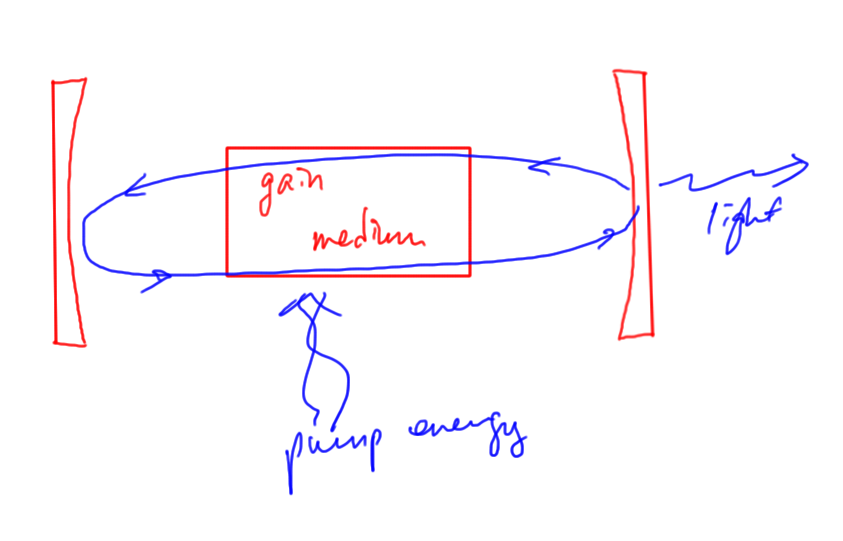 gain
medium
light
pump energy